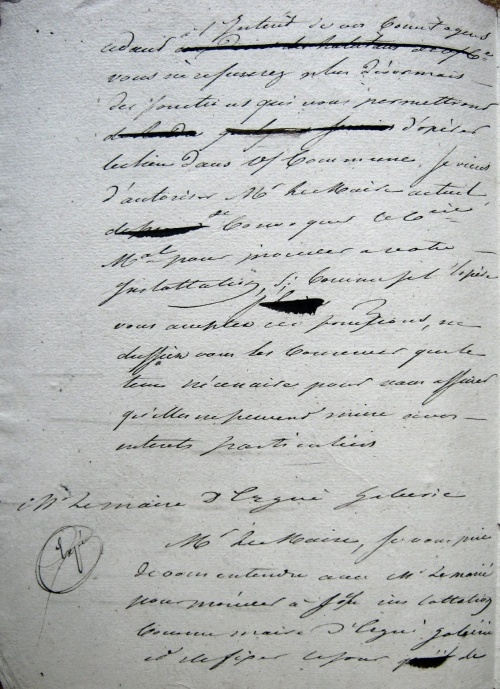 à l'Intérêt de vos Concitoyens
cédant
vous ne refuserez plus désormais
des fonctions qui vous permettront
d'opérer
le bien dans v/ Commune. Je viens
d'autoriser Mr Le Maire actuel
de Convoquer le Ceil
Mal pour procéder a votre
Installation, Si, Comme je l'espère
vous acceptez ces fonctions, ne
dussiez vous les Conserver que le
tems nécessaire pour vous assurer
qu'elles ne peuvent nuire à vos
intérets particuliers
Mr Lemaire d'Ergué Gabéric
Mr Le Maire, Je vous prie
de vous entendre avec Mr Lemarié
pour procéder à Son installation
Comme maire d'Ergué Gabéric
et de fixer le jour de